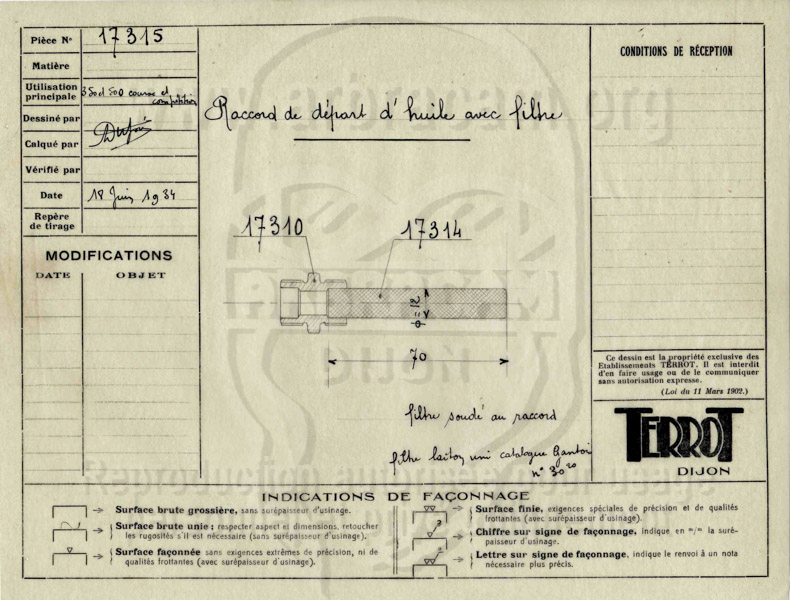 Pièce N° 17315
Matière
Utilisation principale 350 et 500 course et compétition
Dessiné par
Calqué par
Vérifié par
Date 18 Juin 1934
Repère de tirage
MODIFICATIONS
DATE OBJET
Raccord de départ d'huile avec filtre
17310 17314
φ = 12
70
filtre soudé au raccord
filtre laiton uni catalogue Gantois
n° 30
CONDITIONS DE RÉCEPTION
Ce dessin est la propriété exclusive des
Etablissements TERROT. Il est interdit
d'en faire usage ou de le communiquer
sans autorisation expresse.
(Loi du 11 Mars 1902.)
TERROT
DIJON
INDICATIONS DE FAÇONNAGE
Surface brute grossière, sans surépaisseur d'usinage.
Surface brute unie : respecter aspect et dimensions, retoucher
les rugosités s'il est nécessaire (sans surépaisseur d'usinage).
Surface façonnée sans exigences extrêmes de précision, ni de
qualités frottantes (avec surépaisseur d'usinage).
Surface finie, exigences spéciales de précision et de qualités
frottantes (avec surépaisseur d'usinage).
3
Chiffre sur signe de façonnage, indique en m/m la suré-
paisseur d'usinage.
Lettre sur signe de façonnage, indique le renvoi à un nota
nécessaire plus précis.